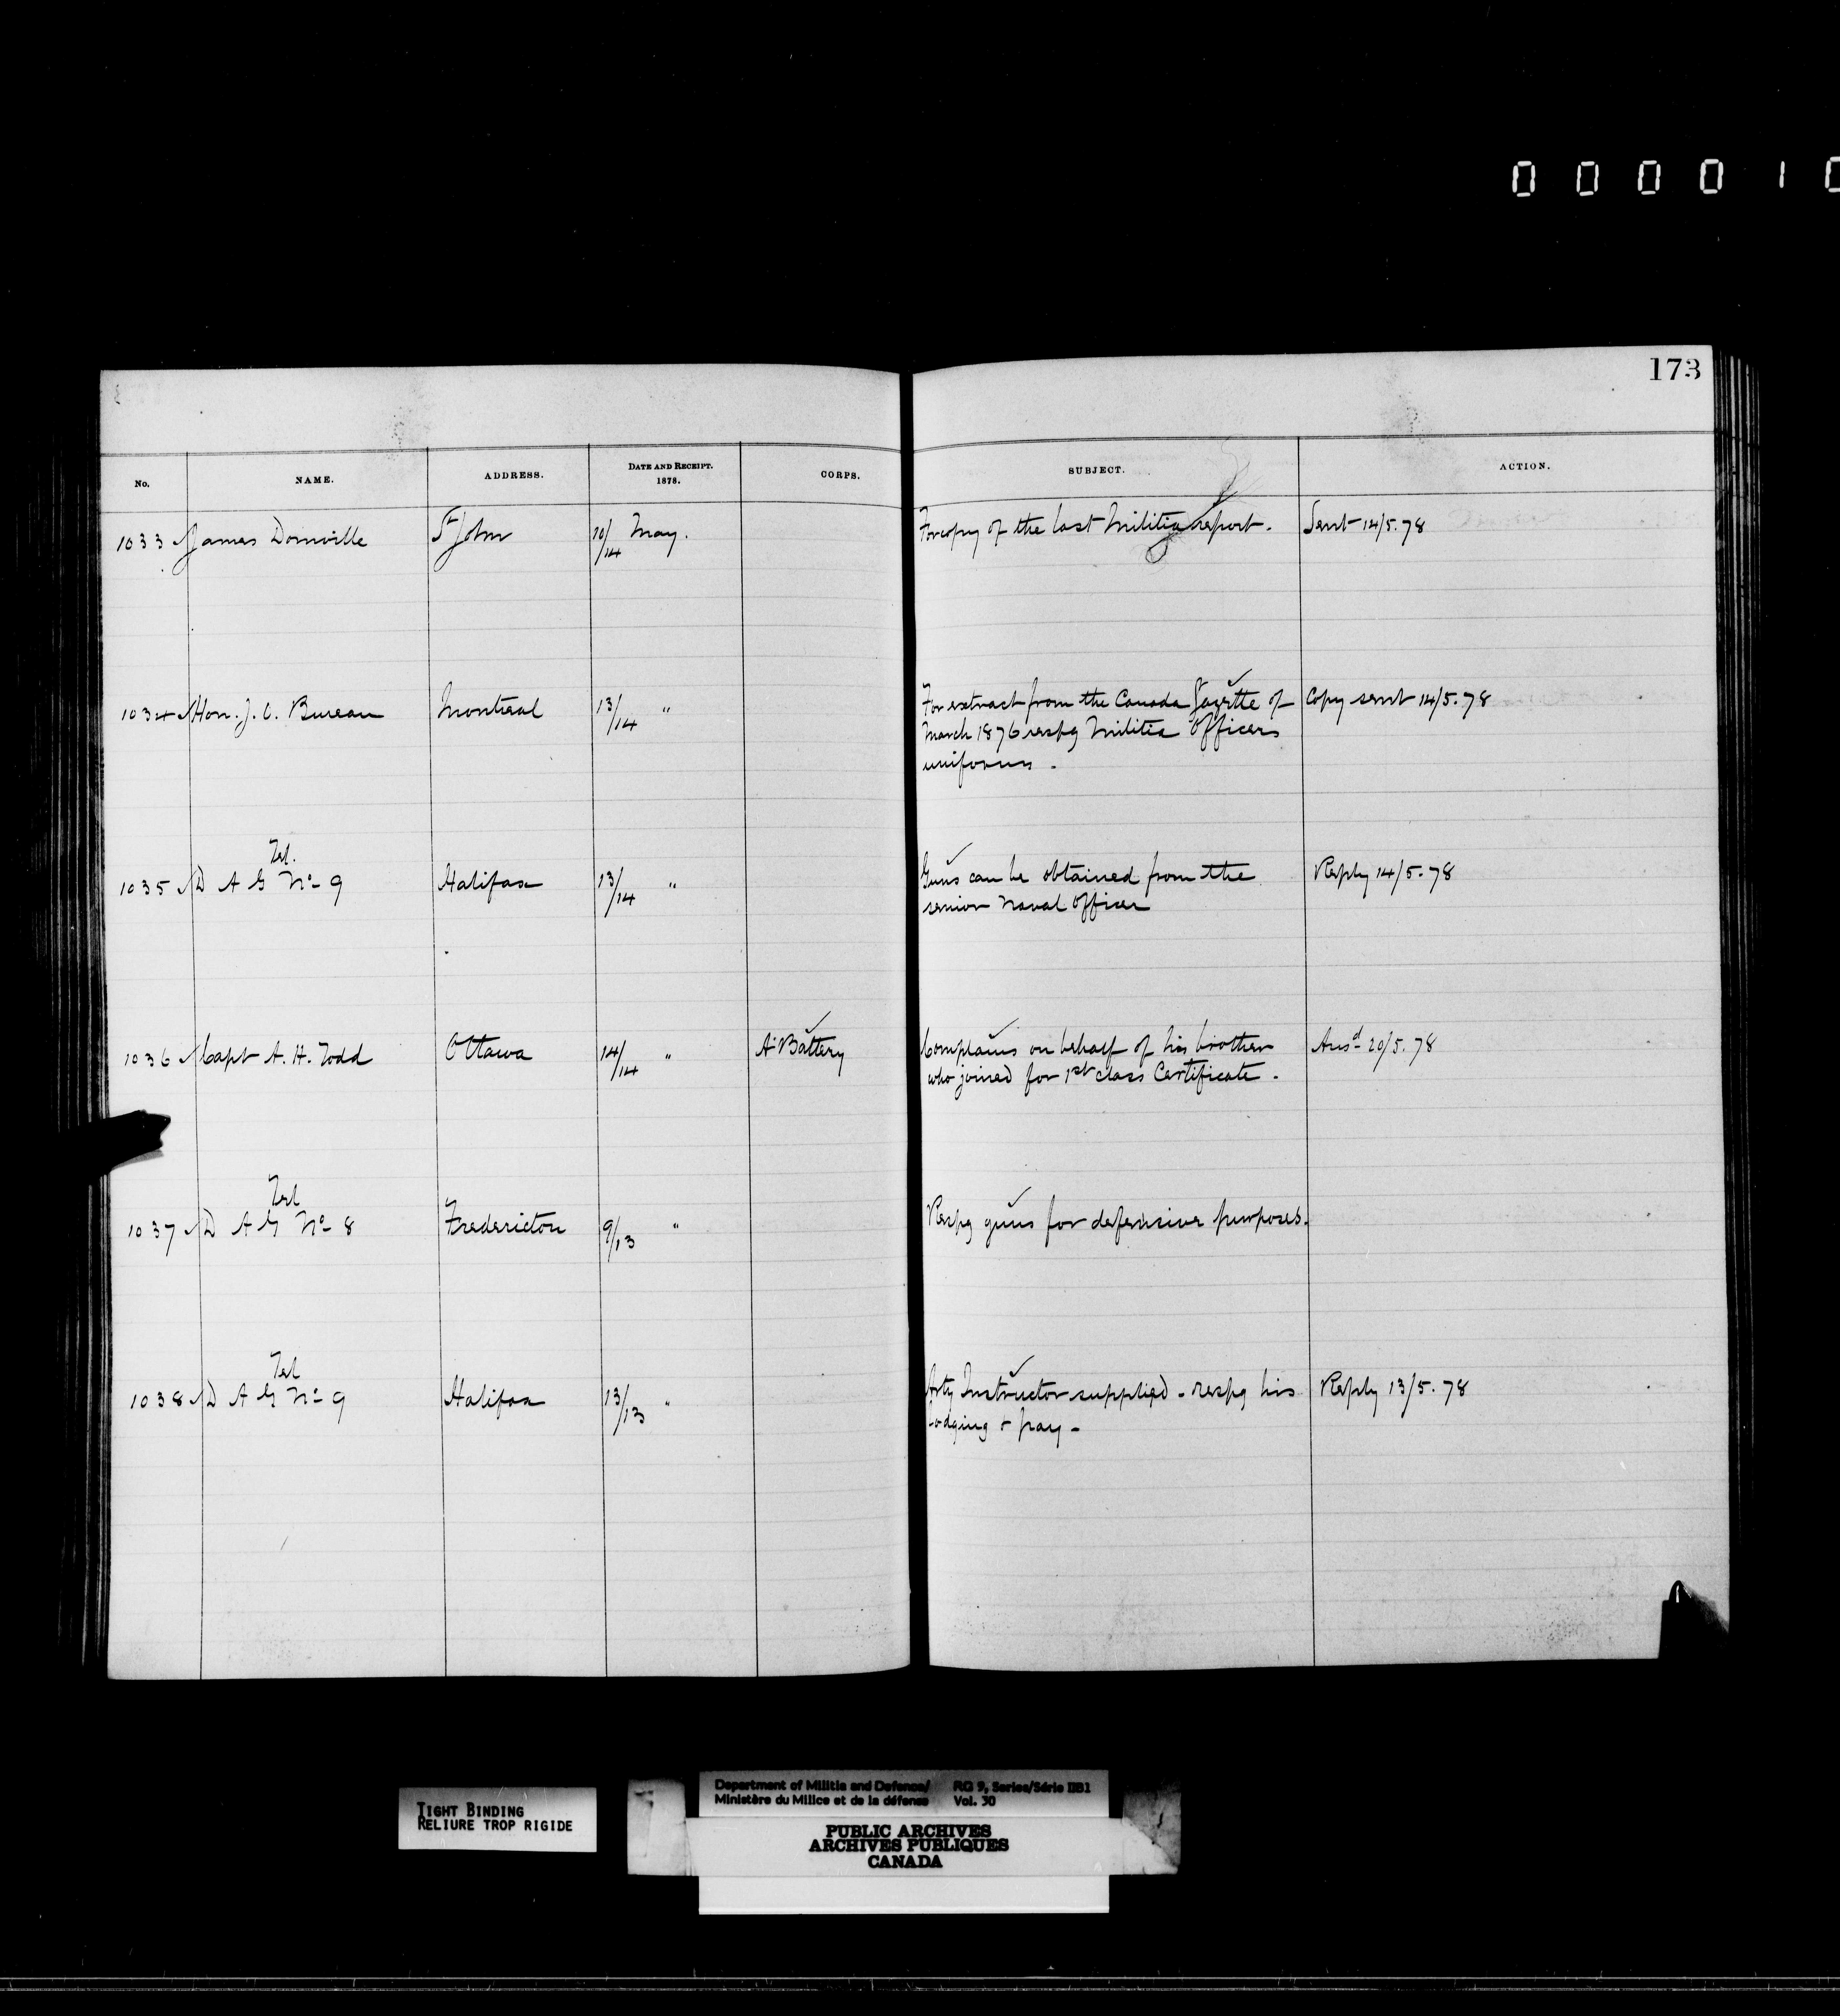 0 0 0 0 1
173
No. NAME. ADDRESS. DATE AND RECEIPT. 1878. CORPS. SUBJECT. ACTION.
1033 James Domville St John 10/14 May. For copy of the last Militia report. Sent 14/5.78
1034 Hon. J. O. Bureau Montreal 13/14 " For extract from the Canada Gazette of Copy sent 14/5.78
March 1876 respg Militia Officers
uniforms.
Tel.
1035 D A G No 9 Halifax 13/14 " Guns can be obtained from the Reply 14/5.78
senior Naval Officer
1036 Capt A. H. Todd Ottawa 14/14 " A Battery Complains on behalf of his brother Ansd 20/5.78
who joined for 1st class Certificate.
Tel
1037 D A G No 8 Fredericton 9/13 " Respg guns for defensive purposes.
Tel
1038 D A G No 9 Halifax 13/13 " Arty Instructor supplied - respg his Reply 13/5.78
lodging & pay -
TIGHT BINDING
RELIURE TROP RIGIDE
Department of Militia and Defence/ RG 9, Series/Série IIB1
Ministère du Milice et de la défense Vol. 30
PUBLIC ARCHIVES
ARCHIVES PUBLIQUES
CANADA